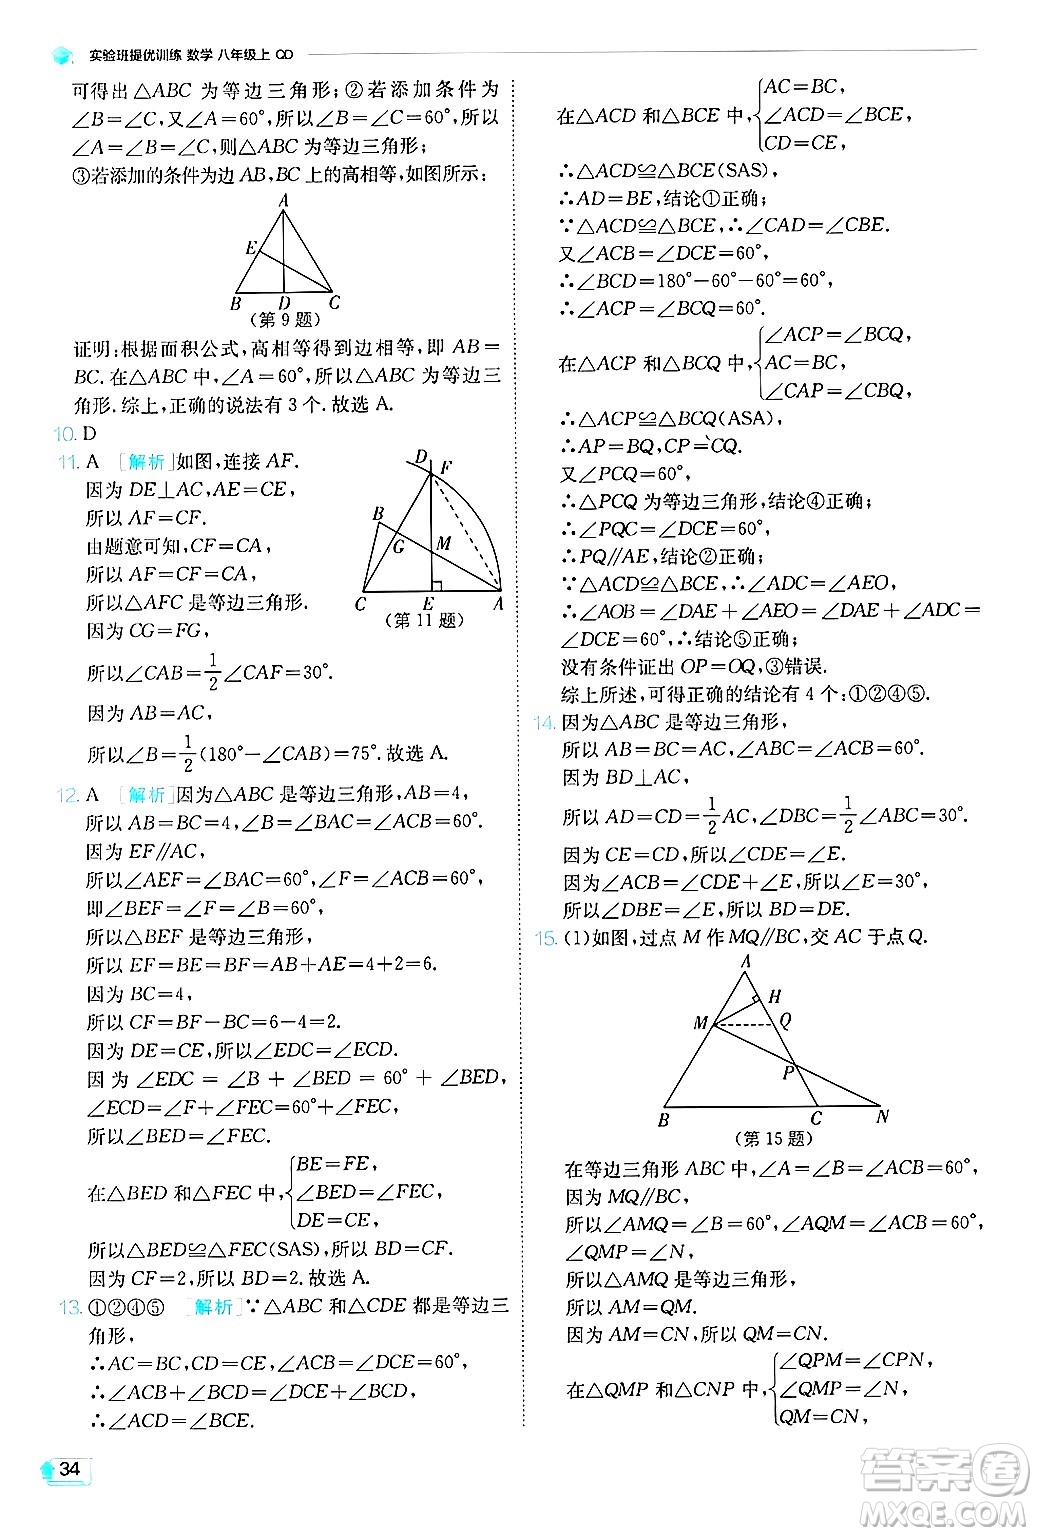 实验班提优训练 数学 八年级上 QD
可得出△ABC 为等边三角形;②若添加条件为
∠B=∠C,又∠A=60°,所以∠B=∠C=60°,所以
∠A=∠B=∠C,则△ABC为等边三角形;
③若添加的条件为边AB,BC上的高相等,如图所示:
A
E
B D C
(第9题)
证明:根据面积公式,高相等得到边相等,即 AB=
BC.在△ABC 中,∠A=60°,所以△ABC 为等边三
角形.综上,正确的说法有 3 个.故选A.
10. D
11. A [解析]如图,连接 AF.
因为 DE⊥AC,AE=CE,
所以 AF=CF.
由题意可知,CF=CA,
所以 AF=CF=CA,
所以△AFC 是等边三角形.
因为 CG=FG,
所以∠CAB=1/2∠CAF=30°.
因为 AB=AC,
所以∠B=1/2(180°-∠CAB)=75°.故选 A.
D F
B
G M
C E A
(第11题)
12. A [解析]因为△ABC 是等边三角形,AB=4,
所以 AB=BC=4,∠B=∠BAC=∠ACB=60°.
因为 EF∥AC,
所以∠AEF=∠BAC=60°,∠F=∠ACB=60°,
即∠BEF=∠F=∠B=60°,
所以△BEF 是等边三角形,
所以 EF=BE=BF=AB+AE=4+2=6.
因为 BC=4,
所以 CF=BF-BC=6-4=2.
因为 DE=CE,所以∠EDC=∠ECD.
因为 ∠EDC = ∠B + ∠BED = 60° + ∠BED,
∠ECD=∠F+∠FEC=60°+∠FEC,
所以∠BED=∠FEC.
在△BED 和△FEC 中,{BE=FE,
∠BED=∠FEC,
DE=CE,
所以△BED≌△FEC(SAS),所以 BD=CF.
因为 CF=2,所以 BD=2.故选 A.
13. ①②④⑤ [解析]∵△ABC 和△CDE 都是等边三
角形,
∴AC=BC,CD=CE,∠ACB=∠DCE=60°,
∴∠ACB+∠BCD=∠DCE+∠BCD,
∴∠ACD=∠BCE.
34
在△ACD 和△BCE 中,{AC=BC,
∠ACD=∠BCE,
CD=CE,
∴△ACD≌△BCE(SAS),
∴AD=BE,结论①正确;
∵△ACD≌△BCE,∴∠CAD=∠CBE.
又∠ACB=∠DCE=60°,
∴∠BCD=180°-60°-60°=60°,
∴∠ACP=∠BCQ=60°.
在△ACP 和△BCQ 中,{∠ACP=∠BCQ,
AC=BC,
∠CAP=∠CBQ,
∴△ACP≌△BCQ(ASA),
∴AP=BQ,CP=CQ.
又∠PCQ=60°,
∴△PCQ 为等边三角形,结论④正确;
∴∠PQC=∠DCE=60°,
∴PQ∥AE,结论②正确;
∵△ACD≌△BCE,∴∠ADC=∠AEO,
∴∠AOB=∠DAE+∠AEO=∠DAE+∠ADC=
∠DCE=60°,∴结论⑤正确;
没有条件证出 OP=OQ,③错误.
综上所述,可得正确的结论有 4 个:①②④⑤.
14. 因为△ABC 是等边三角形,
所以 AB=BC=AC,∠ABC=∠ACB=60°.
因为 BD⊥AC,
所以 AD=CD=1/2AC,∠DBC=1/2∠ABC=30°.
因为 CE=CD,所以∠CDE=∠E.
因为∠ACB=∠CDE+∠E,所以∠E=30°,
所以∠DBE=∠E,所以 BD=DE.
15. (1)如图,过点 M 作 MQ∥BC,交 AC 于点 Q.
A
H
M Q
P
B C N
(第15题)
在等边三角形 ABC 中,∠A=∠B=∠ACB=60°,
因为 MQ∥BC,
所以∠AMQ=∠B=60°,∠AQM=∠ACB=60°,
∠QMP=∠N,
所以△AMQ 是等边三角形,
所以 AM=QM.
因为 AM=CN,所以 QM=CN.
在△QMP 和△CNP 中,{∠QPM=∠CPN,
∠QMP=∠N,
QM=CN,
答案圈
MXQE.COM